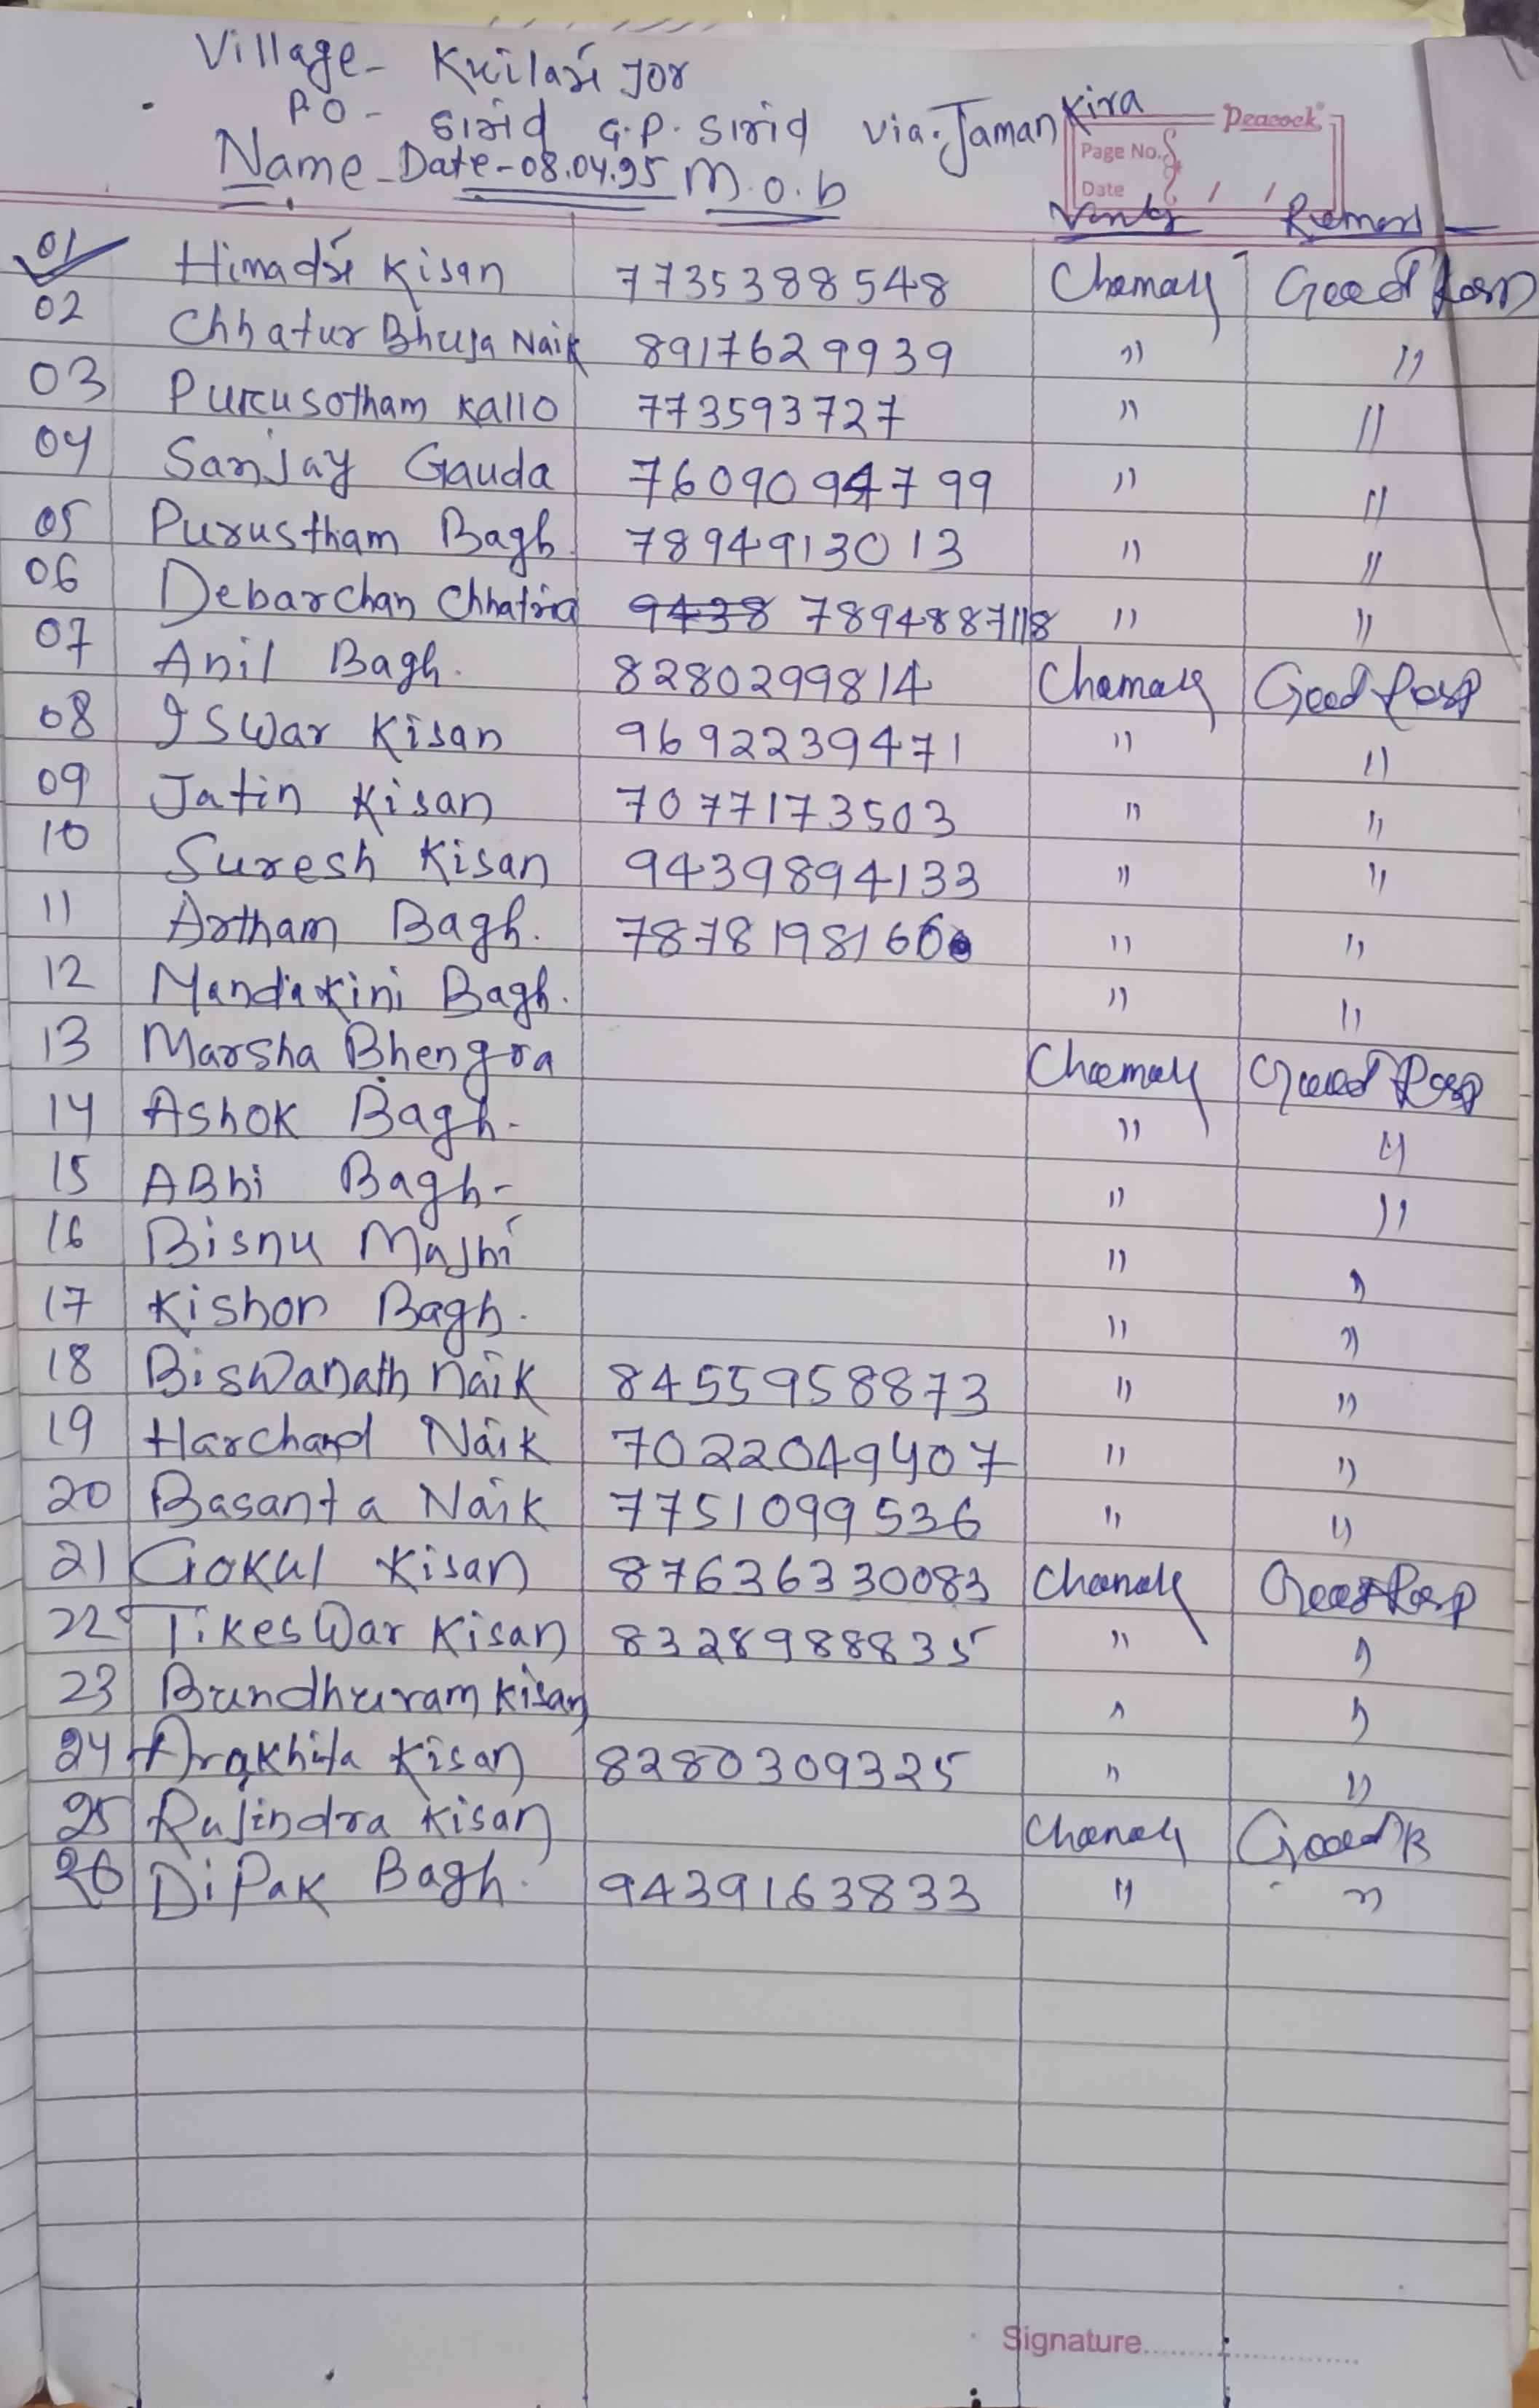 Village - Kuilari Jor
P.O - Sirid G.P. Sirid Via. Jamankira
Peacock
Page No.
Date / /
Name - Date - 08.04.95 M.o.b Remark
01 Himadri Kisan 7735388548 Good Resp
02 Chhatur Bhuja Naik 8917629939 " "
03 Purusotham Kallo 773593727 " "
04 Sanjay Gauda 7609094799 " "
05 Purustham Bagh. 7894913013 " "
06 Debarchan Chhatria 9438 7894887118 " "
07 Anil Bagh. 8280299814 Good Resp
08 Iswar Kisan 9692239471 " "
09 Jatin Kisan 7077173503 " "
10 Suresh Kisan 9439894133 " "
11 Artham Bagh. 7878198160 " "
12 Mandakini Bagh. " "
13 Marsha Bhengra Good Resp
14 Ashok Bagh - " "
15 ABhi Bagh - " "
16 Bisnu Majhi " "
17 Kishor Bagh. " "
18 Biswanath Naik 8455958873 " "
19 Harchand Naik 7022049407 " "
20 Basanta Naik 7751099536 " "
21 Gokul Kisan 87636330083 Good Resp
22 Tikeswar Kisan 8328988835 " "
23 Bundhuram Kisan " "
24 Arakhita Kisan 8280309325 " "
25 Rajindra Kisan Good R
26 DiPak Bagh. 9439163833 " "
Signature